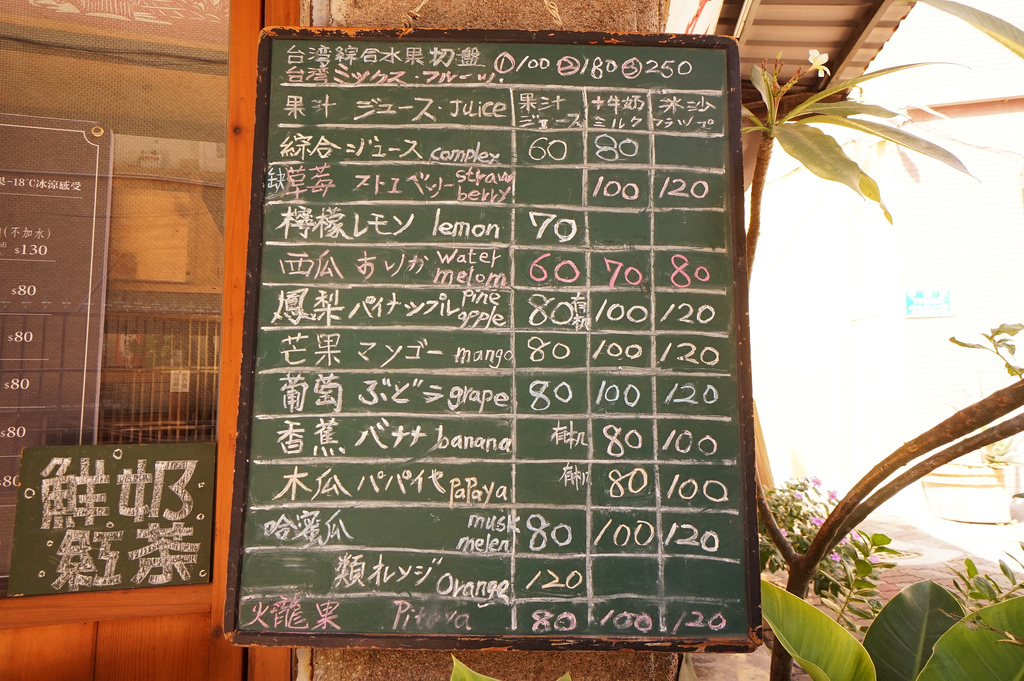 台湾綜合水果切盤 ①100 ②180 ③250
台湾ミックス・フルーツ.
果汁 ジュース・Juice 果汁ジュース +牛奶ミルク 氷沙フラップ
綜合ジュース complex 60 80
缺 草莓 ストエベリー straw berry 100 120
檸檬レモン lemon 70
西瓜 すいか water melom 60 70 80
鳳梨 パイナップル pine apple 80 有机 100 120
芒果 マンゴー mango 80 100 120
葡萄 ぶどう grape 80 100 120
香蕉 バナナ banana 有机 80 100
木瓜 パパイヤ PaPaya 有机 80 100
哈蜜瓜 musk melen 80 100 120
類オレンジ Orange 120
火龍果 Pitaya 80 100 120
鮮奶
紅茶
果-18℃冰涼感受
(不加水)
$130
$80
$80
$80
$80
$80